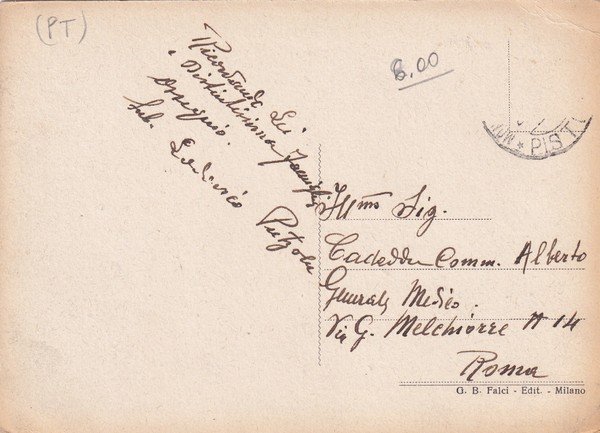 (PT)
8.00
Ricordando Lei
e Distintissima famiglia
ossequio.
Lodovico Pietzolu
* PIST
Ill/mo Sig.
Cadeddu Comm. Alberto
Generale Medico.
Via G. Melchiorre N 14
Roma
G. B. Falci - Edit. - Milano